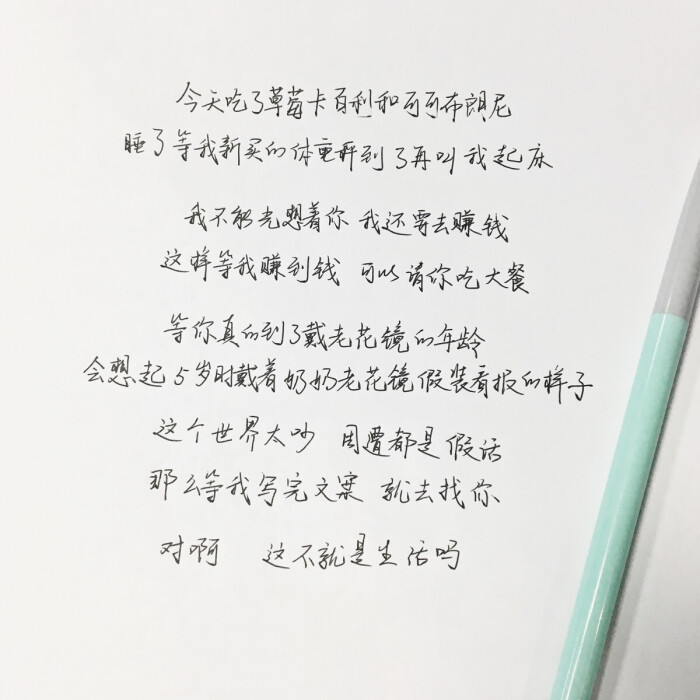 今天吃了草莓卡百利和可可布朗尼
睡了等我新买的体重秤到了再叫我起床
我不能光想着你 我还要去赚钱
这样等我赚到钱 可以请你吃大餐
等你真的到了戴老花镜的年龄
会想起5岁时戴着奶奶老花镜假装看报的样子
这个世界太吵 周遭都是假话
那么等我写完文案 就去找你
对啊 这不就是生活吗